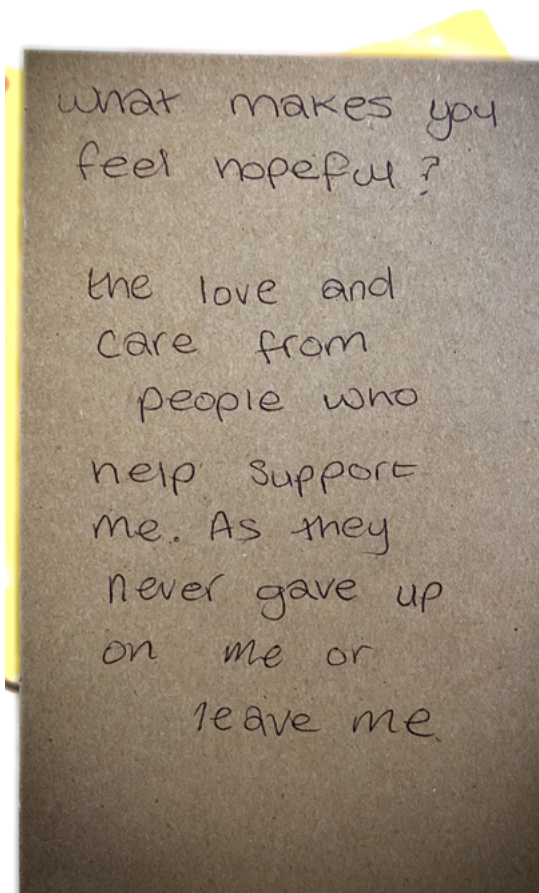 what makes you
feel hopeful?
the love and
care from
people who
help support
me. As they
never gave up
on me or
leave me.